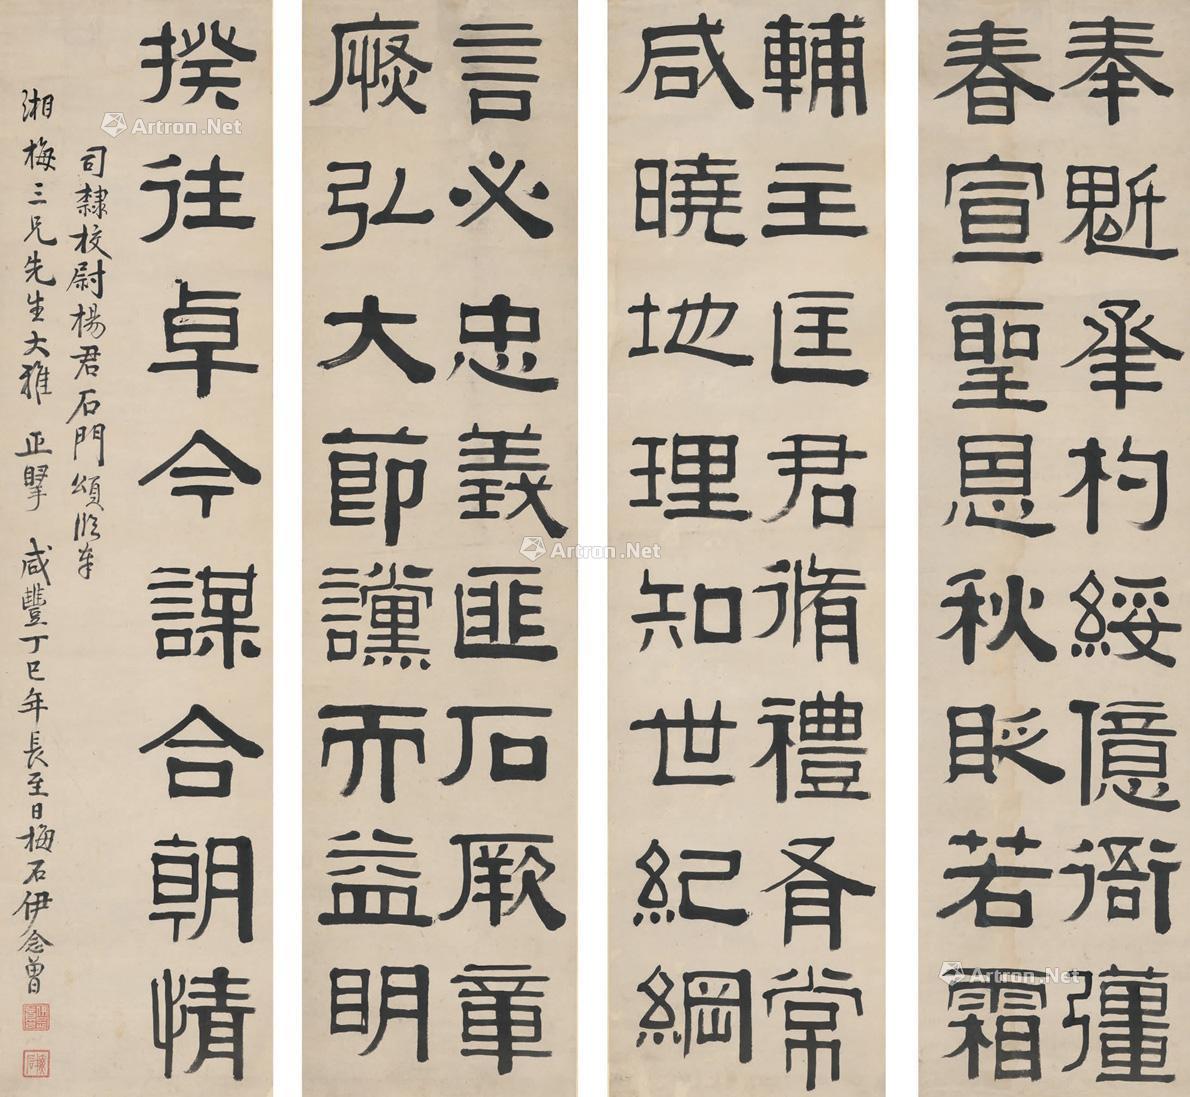 奉魁承杓綏億衙彊
春宣聖恩秋貶若霜
輔主匡君脩禮有常
咸曉地理知世紀綱
言必忠義匪石厥章
厥弘大節讜而益明
揆往卓今謀合朝情
司隸校尉楊君石門頌臨奉
湘梅三兄先生大雅 正擘 咸豐丁巳年長至日梅石伊念曾
Artron.Net
Artron.Net
Artron.Net